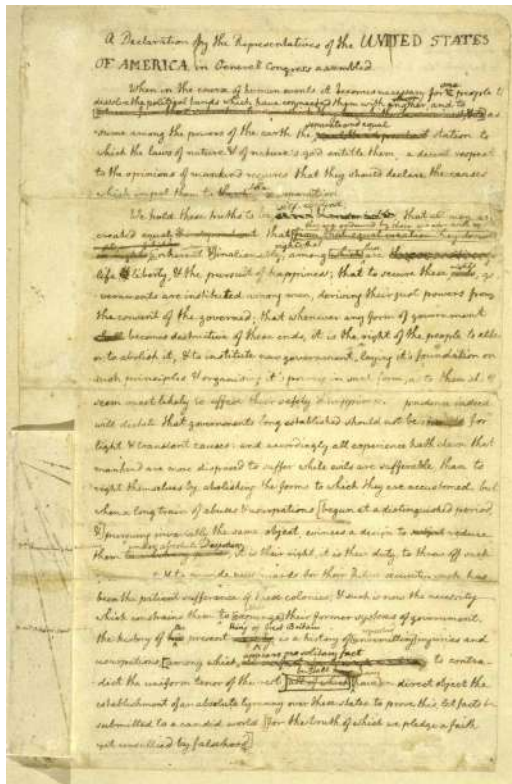 A Declaration by the Representatives of the UNITED STATES
OF AMERICA, in General Congress assembled.
When in the course of human events it becomes necessary for one people to
dissolve the political bands which have connected them with another, and to
assume among the powers of the earth the separate and equal station to
which the laws of nature & of nature's god entitle them, a decent respect
to the opinions of mankind requires that they should declare the causes
which impel them to the separation.
We hold these truths to be self-evident, that all men are
created equal that
rights; that among are
life liberty, & the pursuit of happiness; that to secure these rights, go-
vernments are instituted among men, deriving their just powers from
the consent of the governed; that whenever any form of government
becomes destructive of these ends, it is the right of the people to alter
or to abolish it, & to institute new government, laying it's foundation on
such principles & organising it's powers in such form, as to them shall
seem most likely to effect their safety & happiness. prudence indeed
will dictate that governments long established should not be changed for
light & transient causes: and accordingly all experience hath shewn that
mankind are more disposed to suffer while evils are sufferable, than to
right themselves by abolishing the forms to which they are accustomed. but
when a long train of abuses & usurpations [begun at a distinguished period,
&] pursuing invariably the same object, evinces a design to reduce
them under absolute Despotism, it is their right, it is their duty, to throw off such
& to provide new guards for their future security. such has
been the patient sufferance of these colonies; & such is now the necessity
which constrains them to [expunge] their former systems of government.
the history of the present King of Great Britain is a history of [unremitting] injuries and
usurpations, [among which, appears no solitary fact to contra-
dict the uniform tenor of the rest, all of which [have] in direct object the
establishment of an absolute tyranny over these states. to prove this, let facts be
submitted to a candid world, [for the truth of which we pledge a faith
yet unsullied by falsehood]